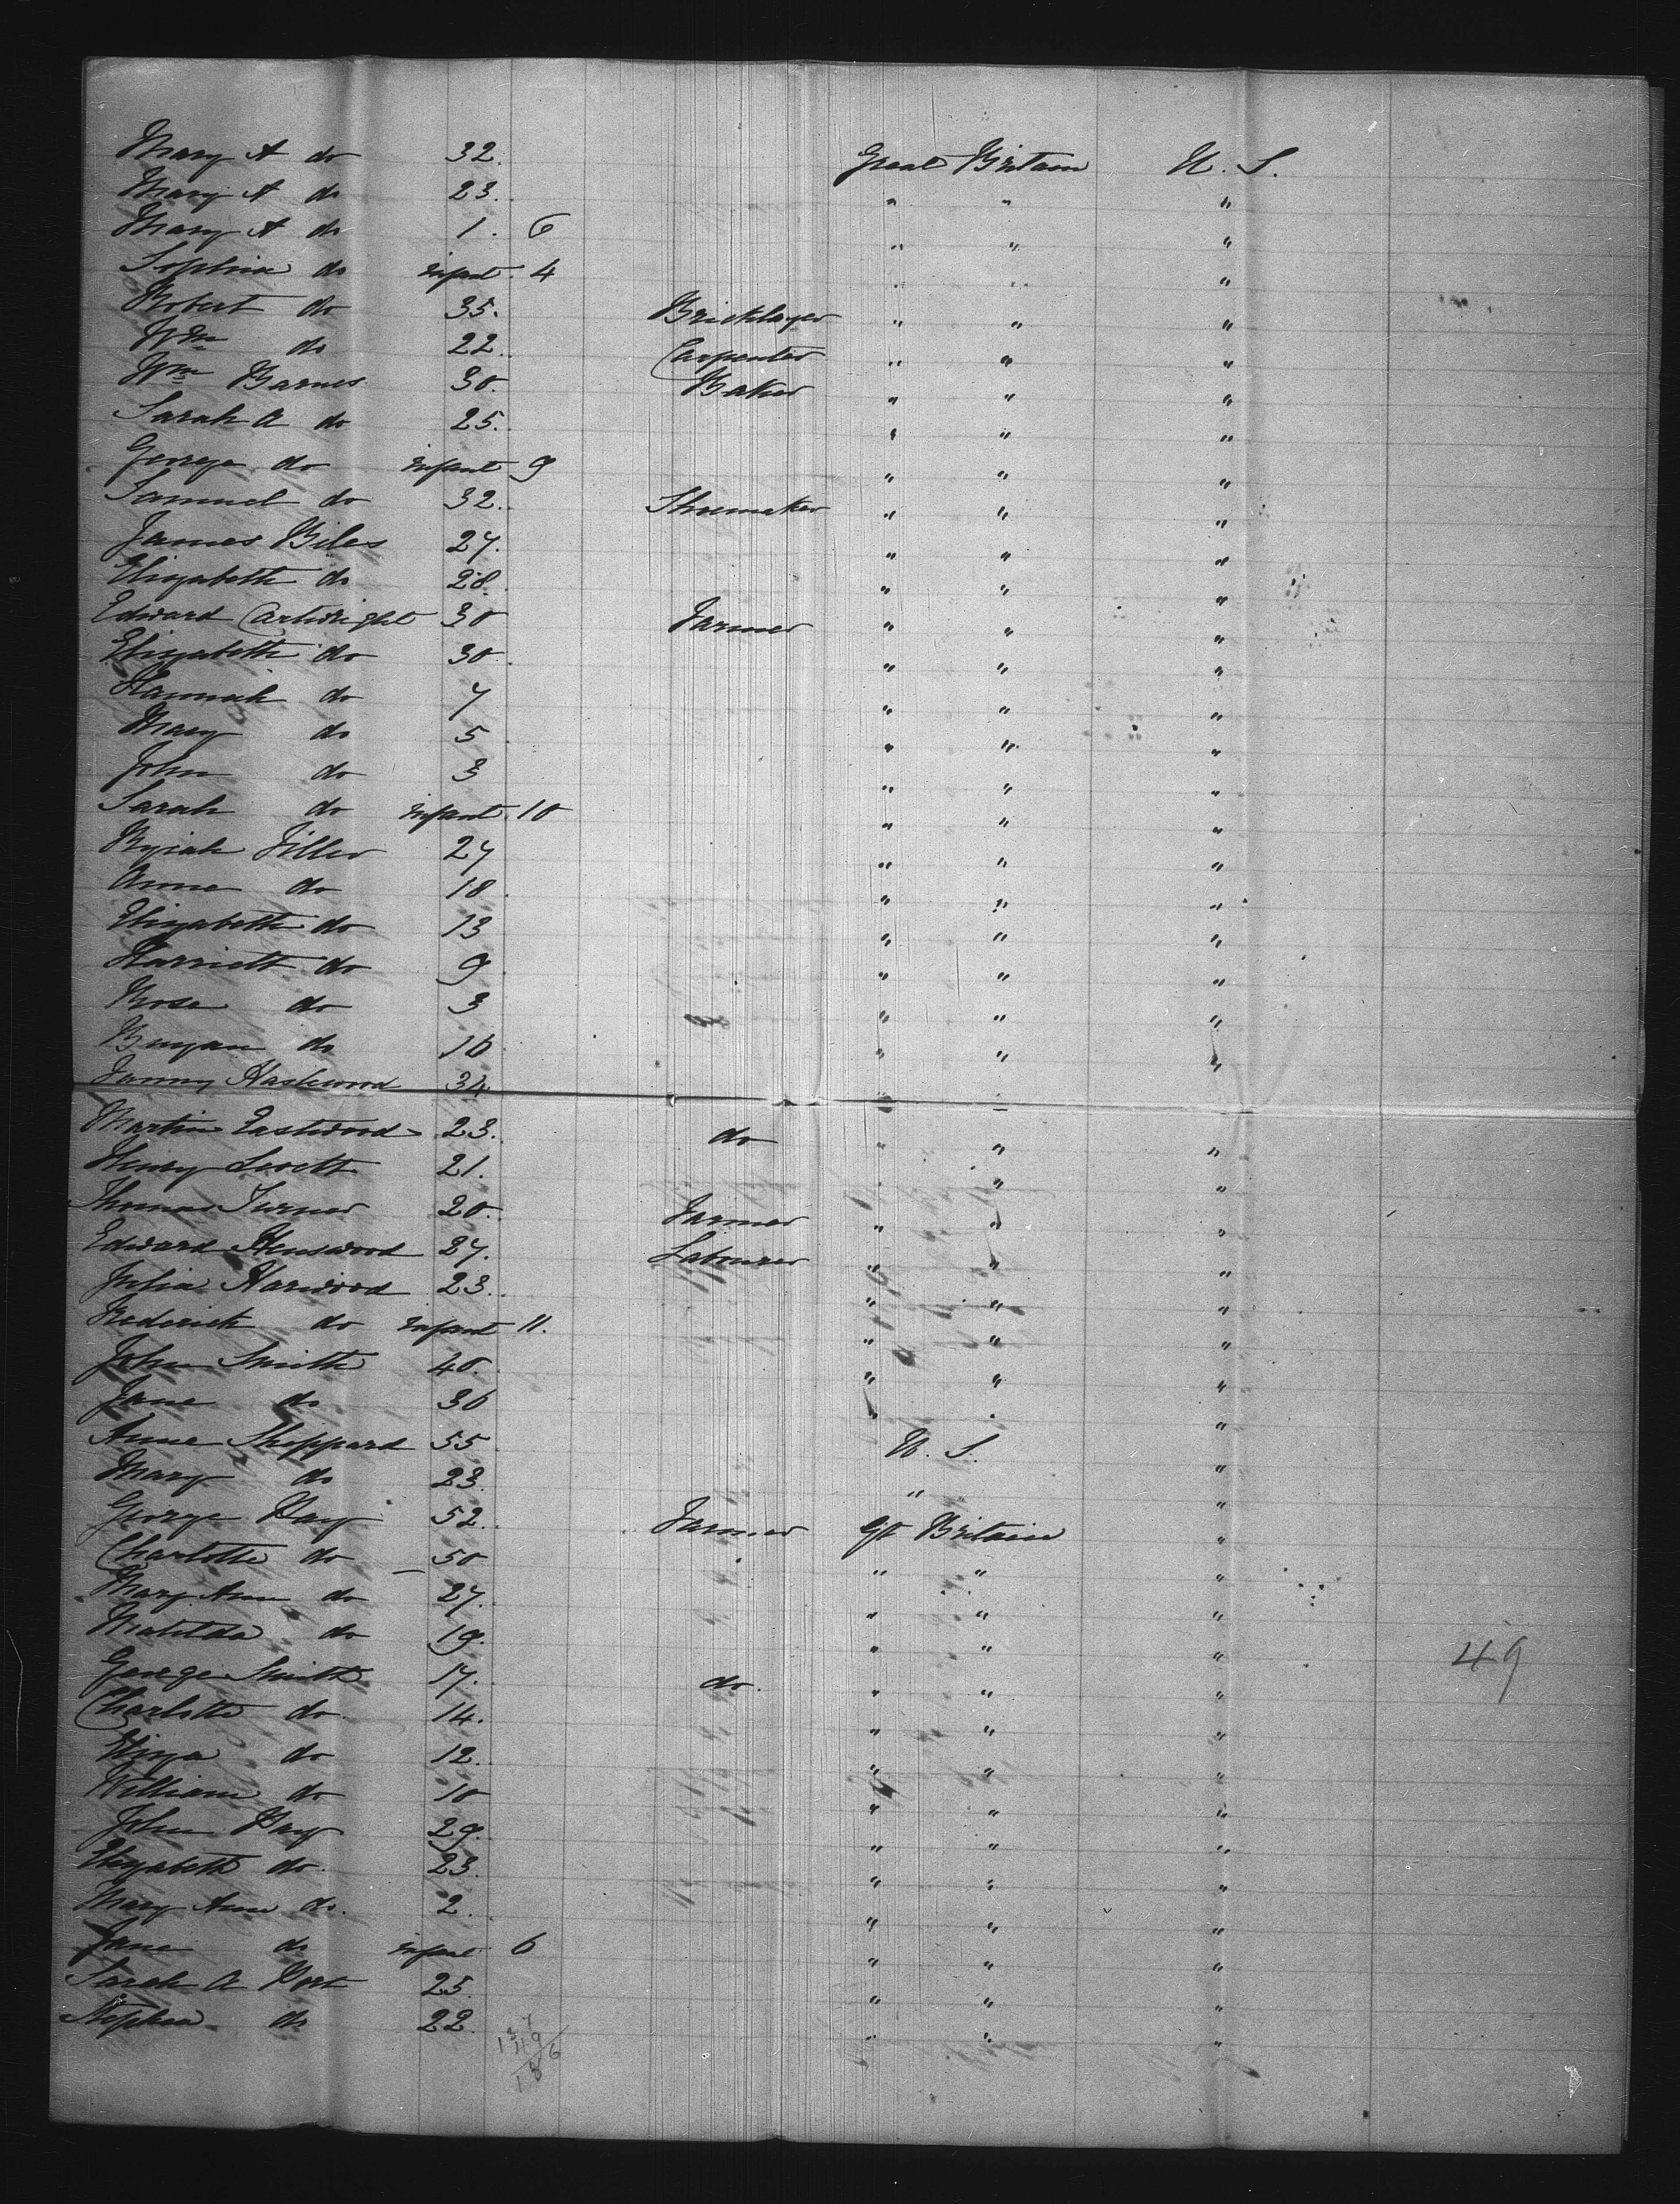 Mary A do 32. Great Britain U. S.
Mary A do 23. " " "
Mary A do 1. 6 " " "
Sophia do infant. 4 " " "
Robert do 35. Bricklayer " " "
Wm do 22. Carpenter " " "
Wm Barnes 30. Baker " " "
Sarah A do 25. " " "
George do infant 9 " " "
Samuel do 32. Shoemaker " " "
James Biles 27. " " "
Elizabeth do 28. " " "
Edward Cartwright 30 Farmer " " "
Elizabeth do 30. " " "
Hannah do 7 " " "
Mary do 5 " " "
John do 3 " " "
Sarah do infant. 10 " " "
27 " " "
Anne do 18 " " "
Elizabeth do 13 " " "
Harriett do 9 " " "
Rose do 3 " " "
do 16 " " "
Fanny 34
Martin Eastwood 23. do " " "
Henry 21. " " "
Thomas Turner 20. Farmer " " "
Edward 27. Labourer " " "
Julia Harwood 23. " " "
Frederick do infant 11. " " "
John Smith 40. " " "
Jane do 36 " " "
Anne Sheppard 55 U. S. "
Mary do 23. " "
George Day 52. Farmer Gt Britain "
Charlotte do 50 " " "
Mary Ann do 27. " " "
Matilda do 19. " " "
George Smith 17. do. " " "
Charlotte do 14. " " "
Eliza do 12. " " "
William do 10 " " "
John Day 29. " " "
Elizabeth do. 23. " " "
Mary Anne do. 2. " " "
Jane do infant 6 " " "
Sarah A 25. " " "
Stephen do 22. " " "
49